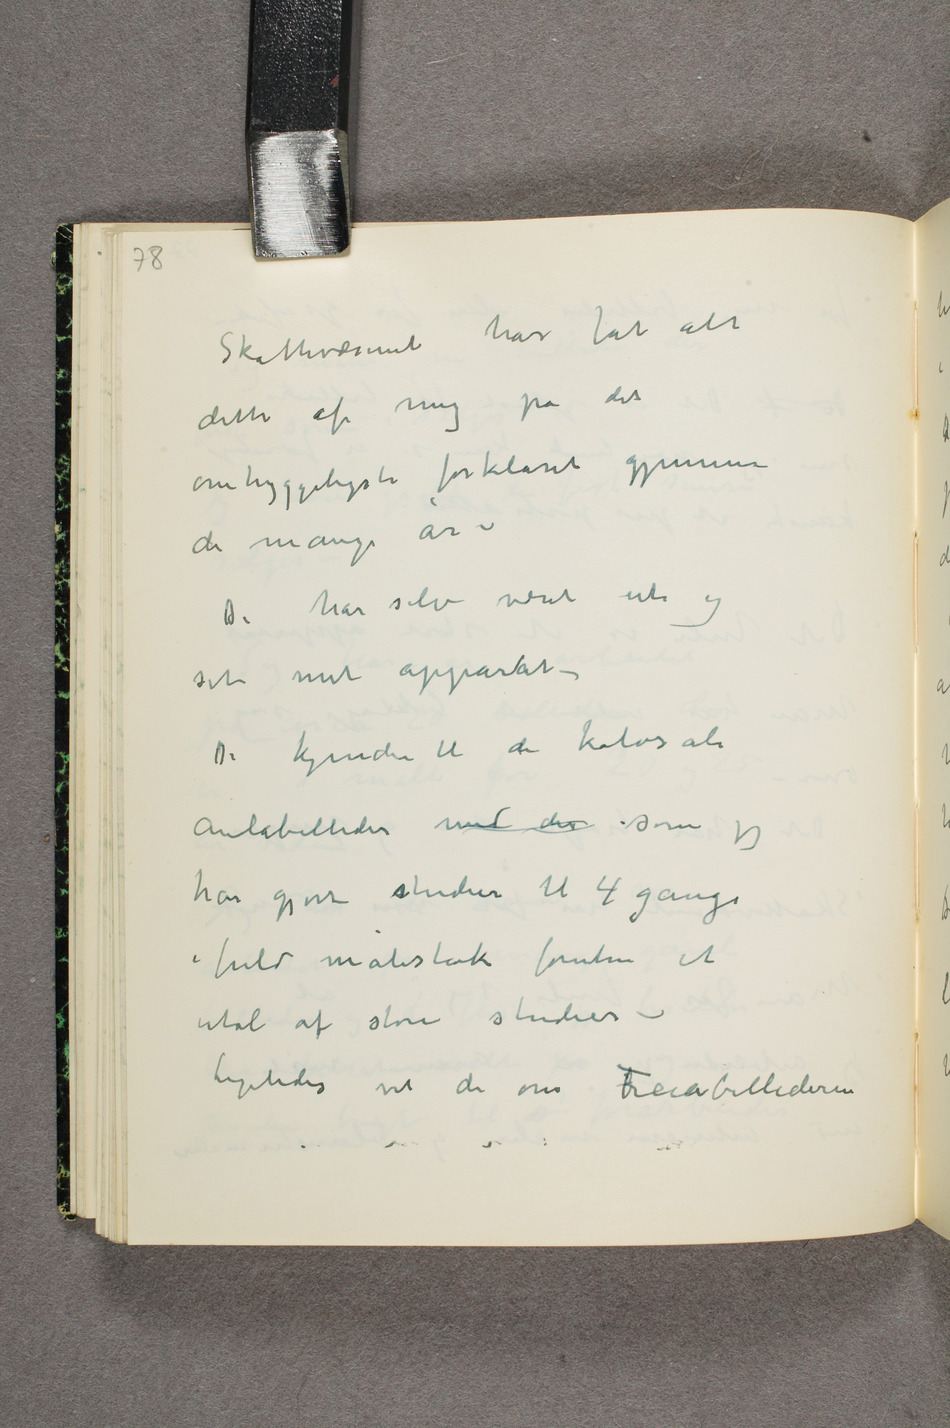 78
Skattevæsenet har fåt alt
dette af mig på det
omhyggeligste forklaret gjennem
de mange år –
De har selv været ute og
set mit apparat –
De kjender til de kolosale
Aulabilleder med des som jeg
har gjort studier til 4 gange
i fuld målestok foruten et
utal af store studier –
Ligeledes vet de om Freiabillederne